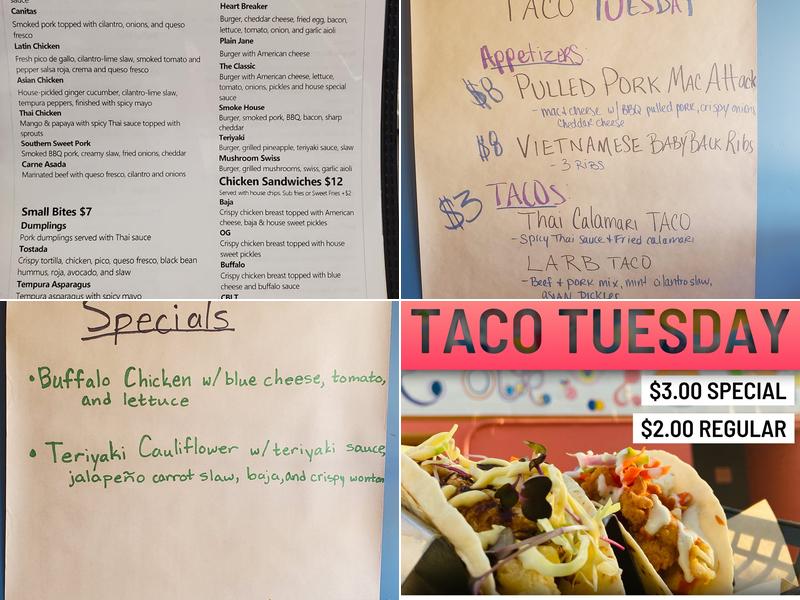 Canitas
Smoked pork topped with cilantro, onions, and queso
fresco
Latin Chicken
Fresh pico de gallo, cilantro-lime slaw, smoked tomato and
pepper salsa roja, crema and queso fresco
Asian Chicken
House-pickled ginger cucumber, cilantro-lime slaw,
tempura peppers, finished with spicy mayo
Thai Chicken
Mango & papaya with spicy Thai sauce topped with
sprouts
Southern Sweet Pork
Smoked BBQ pork, creamy slaw, fried onions, cheddar
Carne Asada
Marinated beef with queso fresco, cilantro and onions
Small Bites $7
Dumplings
Pork dumplings served with Thai sauce
Tostada
Crispy tortilla, chicken, pico, queso fresco, black bean
hummus, roja, avocado, and slaw
Tempura Asparagus
Tempura asparagus with spicy mayo
Heart Breaker
Burger, cheddar cheese, fried egg, bacon,
lettuce, tomato, onion, and garlic aioli
Plain Jane
Burger with American cheese
The Classic
Burger with American cheese, lettuce,
tomato, onions, pickles and house special
sauce
Smoke House
Burger, smoked pork, BBQ, bacon, sharp
cheddar
Teriyaki
Burger, grilled pineapple, teriyaki sauce, slaw
Mushroom Swiss
Burger, grilled mushrooms, swiss, garlic aioli
Chicken Sandwiches $12
Served with house chips. Sub fries or Sweet Fries +$2
Baja
Crispy chicken breast topped with American
cheese, baja & house sweet pickles
OG
Crispy chicken breast topped with house
sweet pickles
Buffalo
Crispy chicken breast topped with blue
cheese and buffalo sauce
CBLT
TACO TUESDAY
Appetizers:
$8 PULLED PORK MAC Attack
- mac & cheese w/ BBQ pulled pork, crispy onions
cheddar cheese
$8 VIETNAMESE BABYBACK Ribs
- 3 RIBS
$3 TACOS:
Thai Calamari TACO
- Spicy Thai Sauce + Fried calamari
LARB TACO
- Beef + pork mix, mint cilantro slaw,
ASIAN PICKLES
Specials
• Buffalo Chicken w/ blue cheese, tomato,
and lettuce
• Teriyaki Cauliflower w/ teriyaki sauce,
jalapeño carrot slaw, baja, and crispy wonton
TACO TUESDAY
$3.00 SPECIAL
$2.00 REGULAR